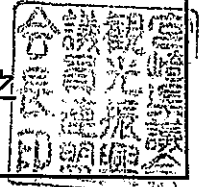 宮崎県議会
観光振興
議員連盟
会長印